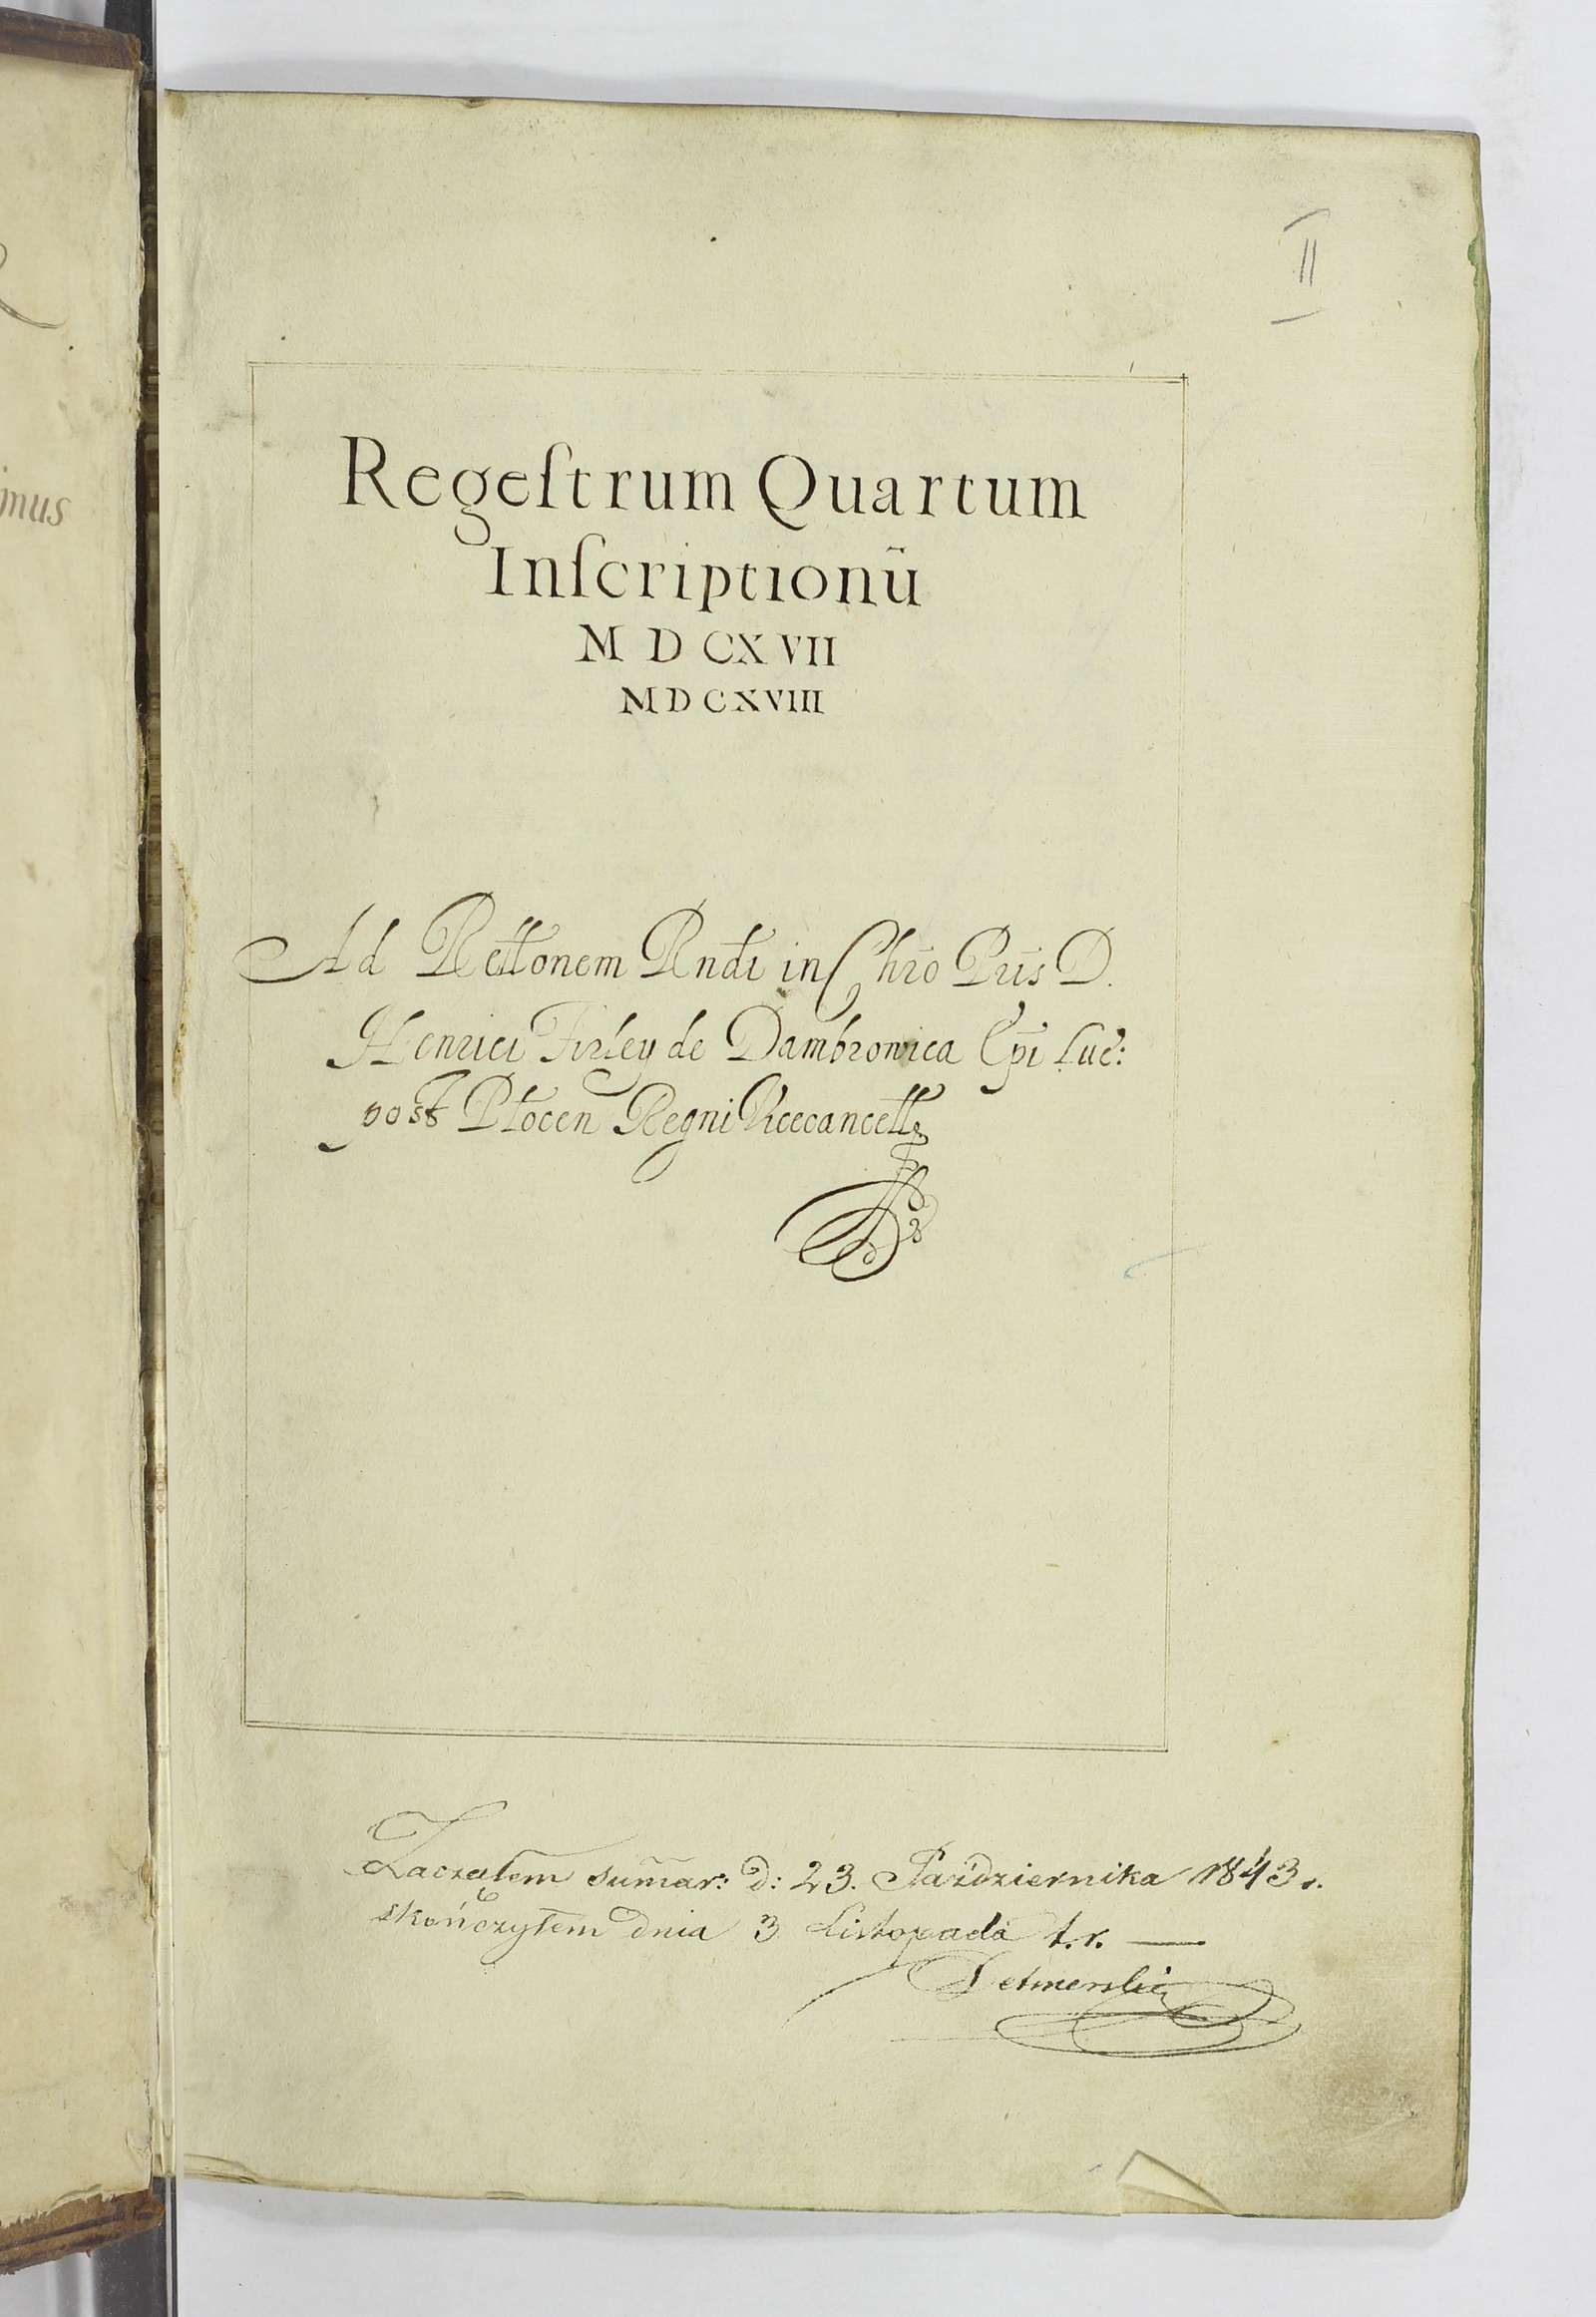 mus
II
Regeſtrum Quartum
Inſcriptionū
M D CX VII
MDCXVIII
Ad Rellonem Rndi in Chro Pris D.
Henrici Firley de Dambrowica Epi Luc:
post Plocen Regni Vicecancell
Zaczałem sum̄ar: d: 23. Października 1843 r.
skończyłem dnia 3 Listopada t.r. —